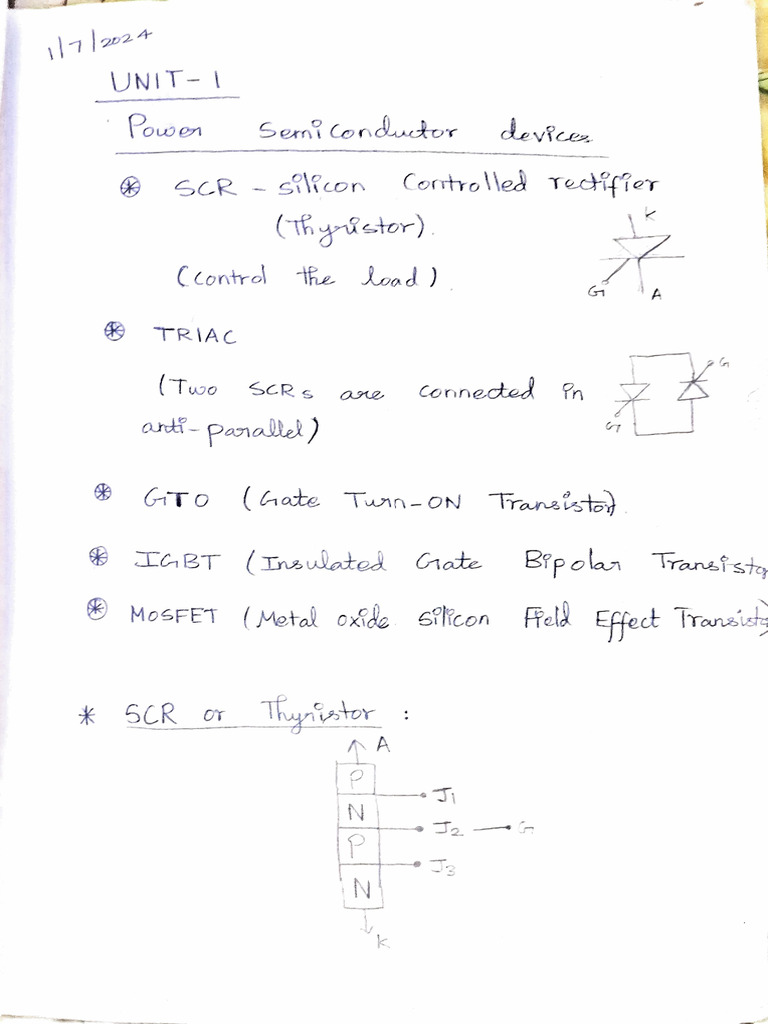 1/7/2024
UNIT-1
Power Semiconductor devices
SCR - silicon Controlled rectifier
(Thyristor).
(control the load).
K
G
A
TRIAC
(Two SCRs are connected in
anti-parallel)
G
G
GTO (Gate Turn-ON Transistor)
IGBT (Insulated Gate Bipolar Transisto
MOSFET (Metal oxide silicon Field Effect Transisto)
* SCR or Thyristor :
A
P
J1
N
J2 G
P
J3
N
K